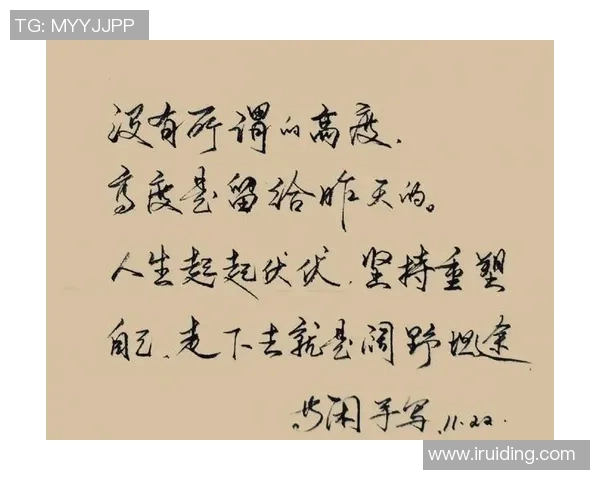 TG: MYYJJPP
没有所谓的高度.
高度是留给昨天的。
人生起起伏伏.坚持重塑
自己.走下去就是阔野坦途
闲手写.11.22.
www.iruiding.com